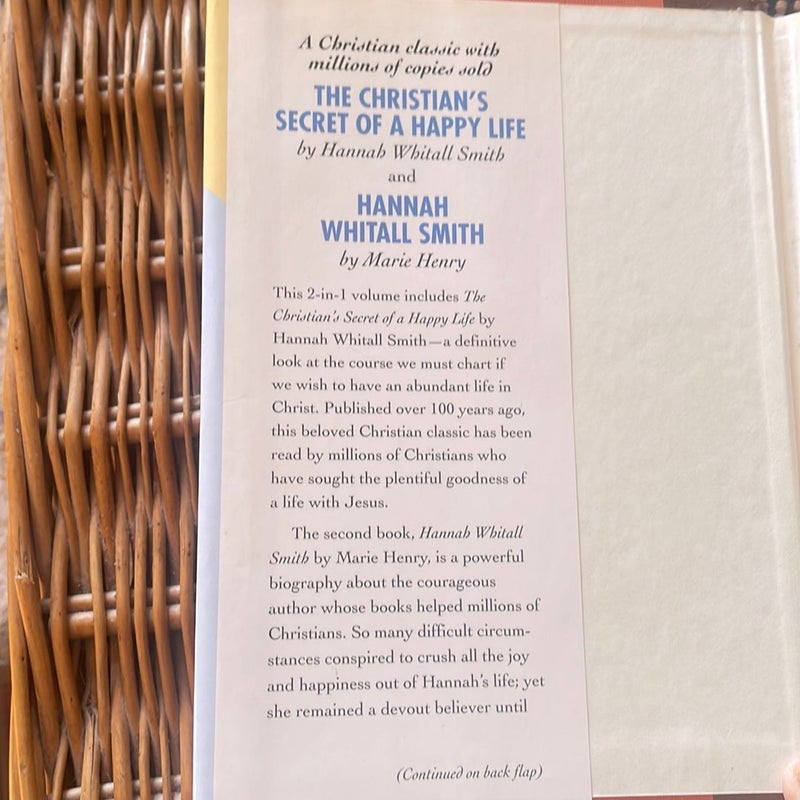 A Christian classic with
millions of copies sold
THE CHRISTIAN'S
SECRET OF A HAPPY LIFE
by Hannah Whitall Smith
and
HANNAH
WHITALL SMITH
by Marie Henry
This 2-in-1 volume includes The
Christian's Secret of a Happy Life by
Hannah Whitall Smith—a definitive
look at the course we must chart if
we wish to have an abundant life in
Christ. Published over 100 years ago,
this beloved Christian classic has been
read by millions of Christians who
have sought the plentiful goodness of
a life with Jesus.
The second book, Hannah Whitall
Smith by Marie Henry, is a powerful
biography about the courageous
author whose books helped millions of
Christians. So many difficult circum-
stances conspired to crush all the joy
and happiness out of Hannah's life; yet
she remained a devout believer until
(Continued on back flap)